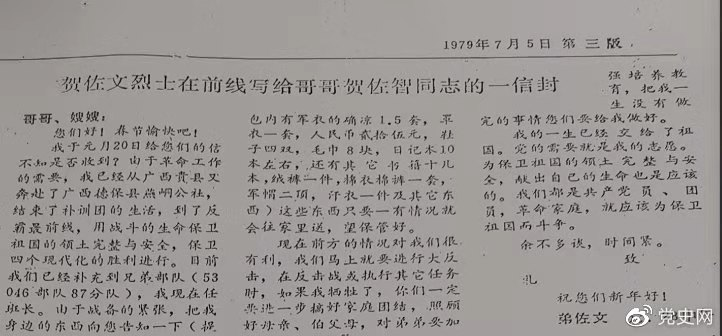 1979年7月5日 第三版
贺佐文烈士在前线写给哥哥贺佐智同志的一信封
哥哥、嫂嫂：
您们好！春节愉快吧！
我于元月20日给您们的信
不知是否收到？由于革命工作
的需要，我已经从广西贵县又
奔赴了广西德保县燕峒公社，
结束了补训团的生活，到了反
霸最前线，用战斗的生命保卫
祖国的领土完整与安全，保卫
四个现代化的胜利进行。目前
我们已经补充到兄弟部队（53
046部队87分队），我现在任
班长。由于战备的紧张，把我
身边的东西向您告知一下（提
包内有军衣的确凉1.5套，罩
衣一套，人民币贰拾伍元，鞋
子四双，毛巾8块，日记本10
本左右，还有其它书籍十几
本，绒裤一件，棉衣棉裤一套，
军帽二顶，汗衣一件及其它东
西）这些东西只要一有情况就
会往家里送，望保管好。
现在前方的情况对我们很
有利，我们马上就要进行大反
击，在反击战或执行其它任务
时，如果我牺牲了，你们一定
要进一步搞好家庭团结，照顾
好母亲、伯父母，对弟弟要加
强培养教
育，把我一
生没有做
完的事情您们要给我做好。
我的一生已经交给了祖
国。党的需要就是我的志愿。
为保卫祖国的领土完整与安
全，献出自己的生命也是应该
的。我们都是共产党员、团
员，革命家庭，就应该为保卫
祖国而斗争。
余不多谈，时间紧。
致
礼
祝您们新年好！
弟佐文
党史网